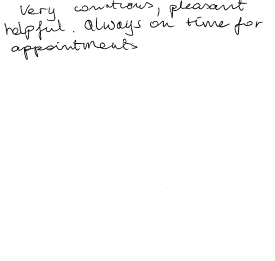 Very courteous, pleasant
helpful. Always on time for
appointments